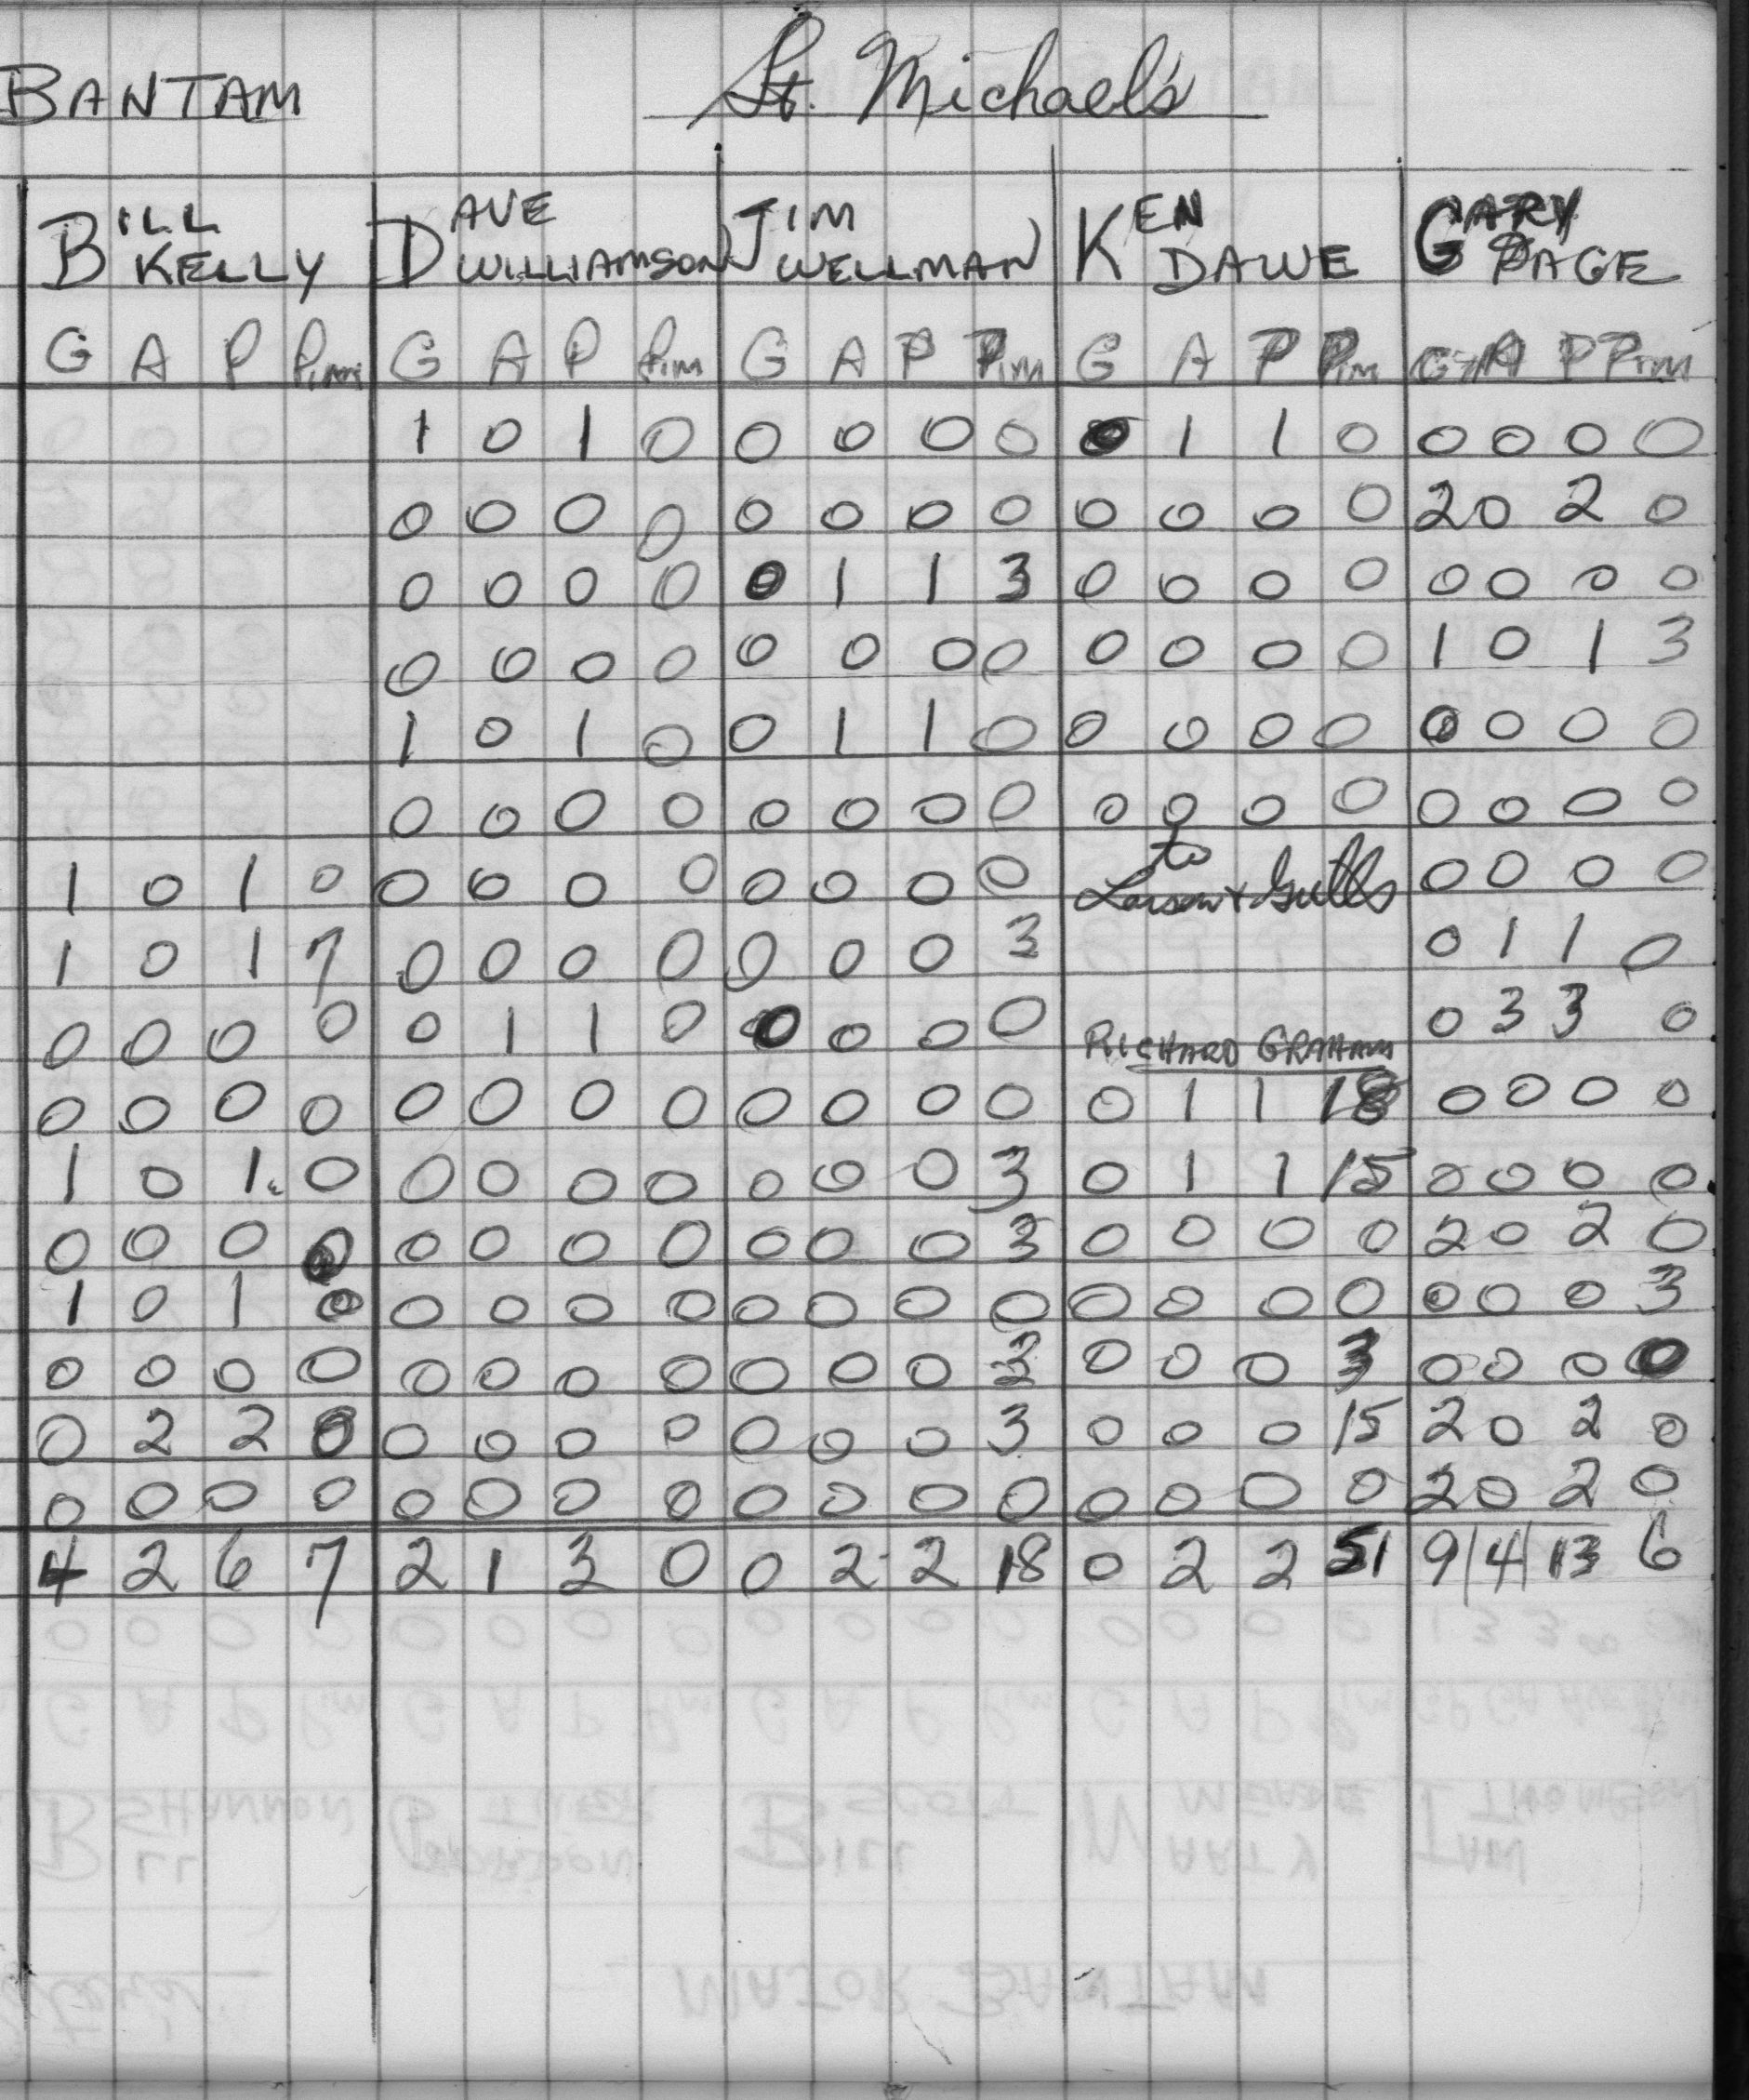 BANTAM St. Michael's
BILL KELLY DAVE WILLIAMSON JIM WELLMAN KEN DAWE GARY PAGE
G A P Pim G A P Pim G A P Pim G A P Pim G A P Pim
1 0 1 0 0 0 0 0 0 1 1 0 0 0 0 0
0 0 0 0 0 0 0 0 0 0 0 0 2 0 2 0
0 0 0 0 0 1 1 3 0 0 0 0 0 0 0 0
0 0 0 0 0 0 0 0 0 0 0 0 1 0 1 3
1 0 1 0 0 1 1 0 0 0 0 0 0 0 0 0
0 0 0 0 0 0 0 0 0 0 0 0 0 0 0 0
1 0 1 0 0 0 0 0 0 0 0 0 to 0 0 0 0
1 0 1 7 0 0 0 0 0 0 0 3 0 1 1 0
0 0 0 0 0 1 1 0 0 0 0 0 RICHARD GRAHAM 0 3 3 0
0 0 0 0 0 0 0 0 0 0 0 0 0 1 1 18 0 0 0 0
1 0 1. 0 0 0 0 0 0 0 0 3 0 1 1 15 0 0 0 0
0 0 0 0 0 0 0 0 0 0 0 3 0 0 0 0 2 0 2 0
1 0 1 0 0 0 0 0 0 0 0 0 0 0 0 0 0 0 0 3
0 0 0 0 0 0 0 0 0 0 0 3 0 0 0 3 0 0 0 0
0 2 2 0 0 0 0 0 0 0 0 3 0 0 0 15 2 0 2 0
0 0 0 0 0 0 0 0 0 0 0 0 0 0 0 0 2 0 2 0
4 2 6 7 2 1 3 0 0 2 2 18 0 2 2 51 9 4 13 6